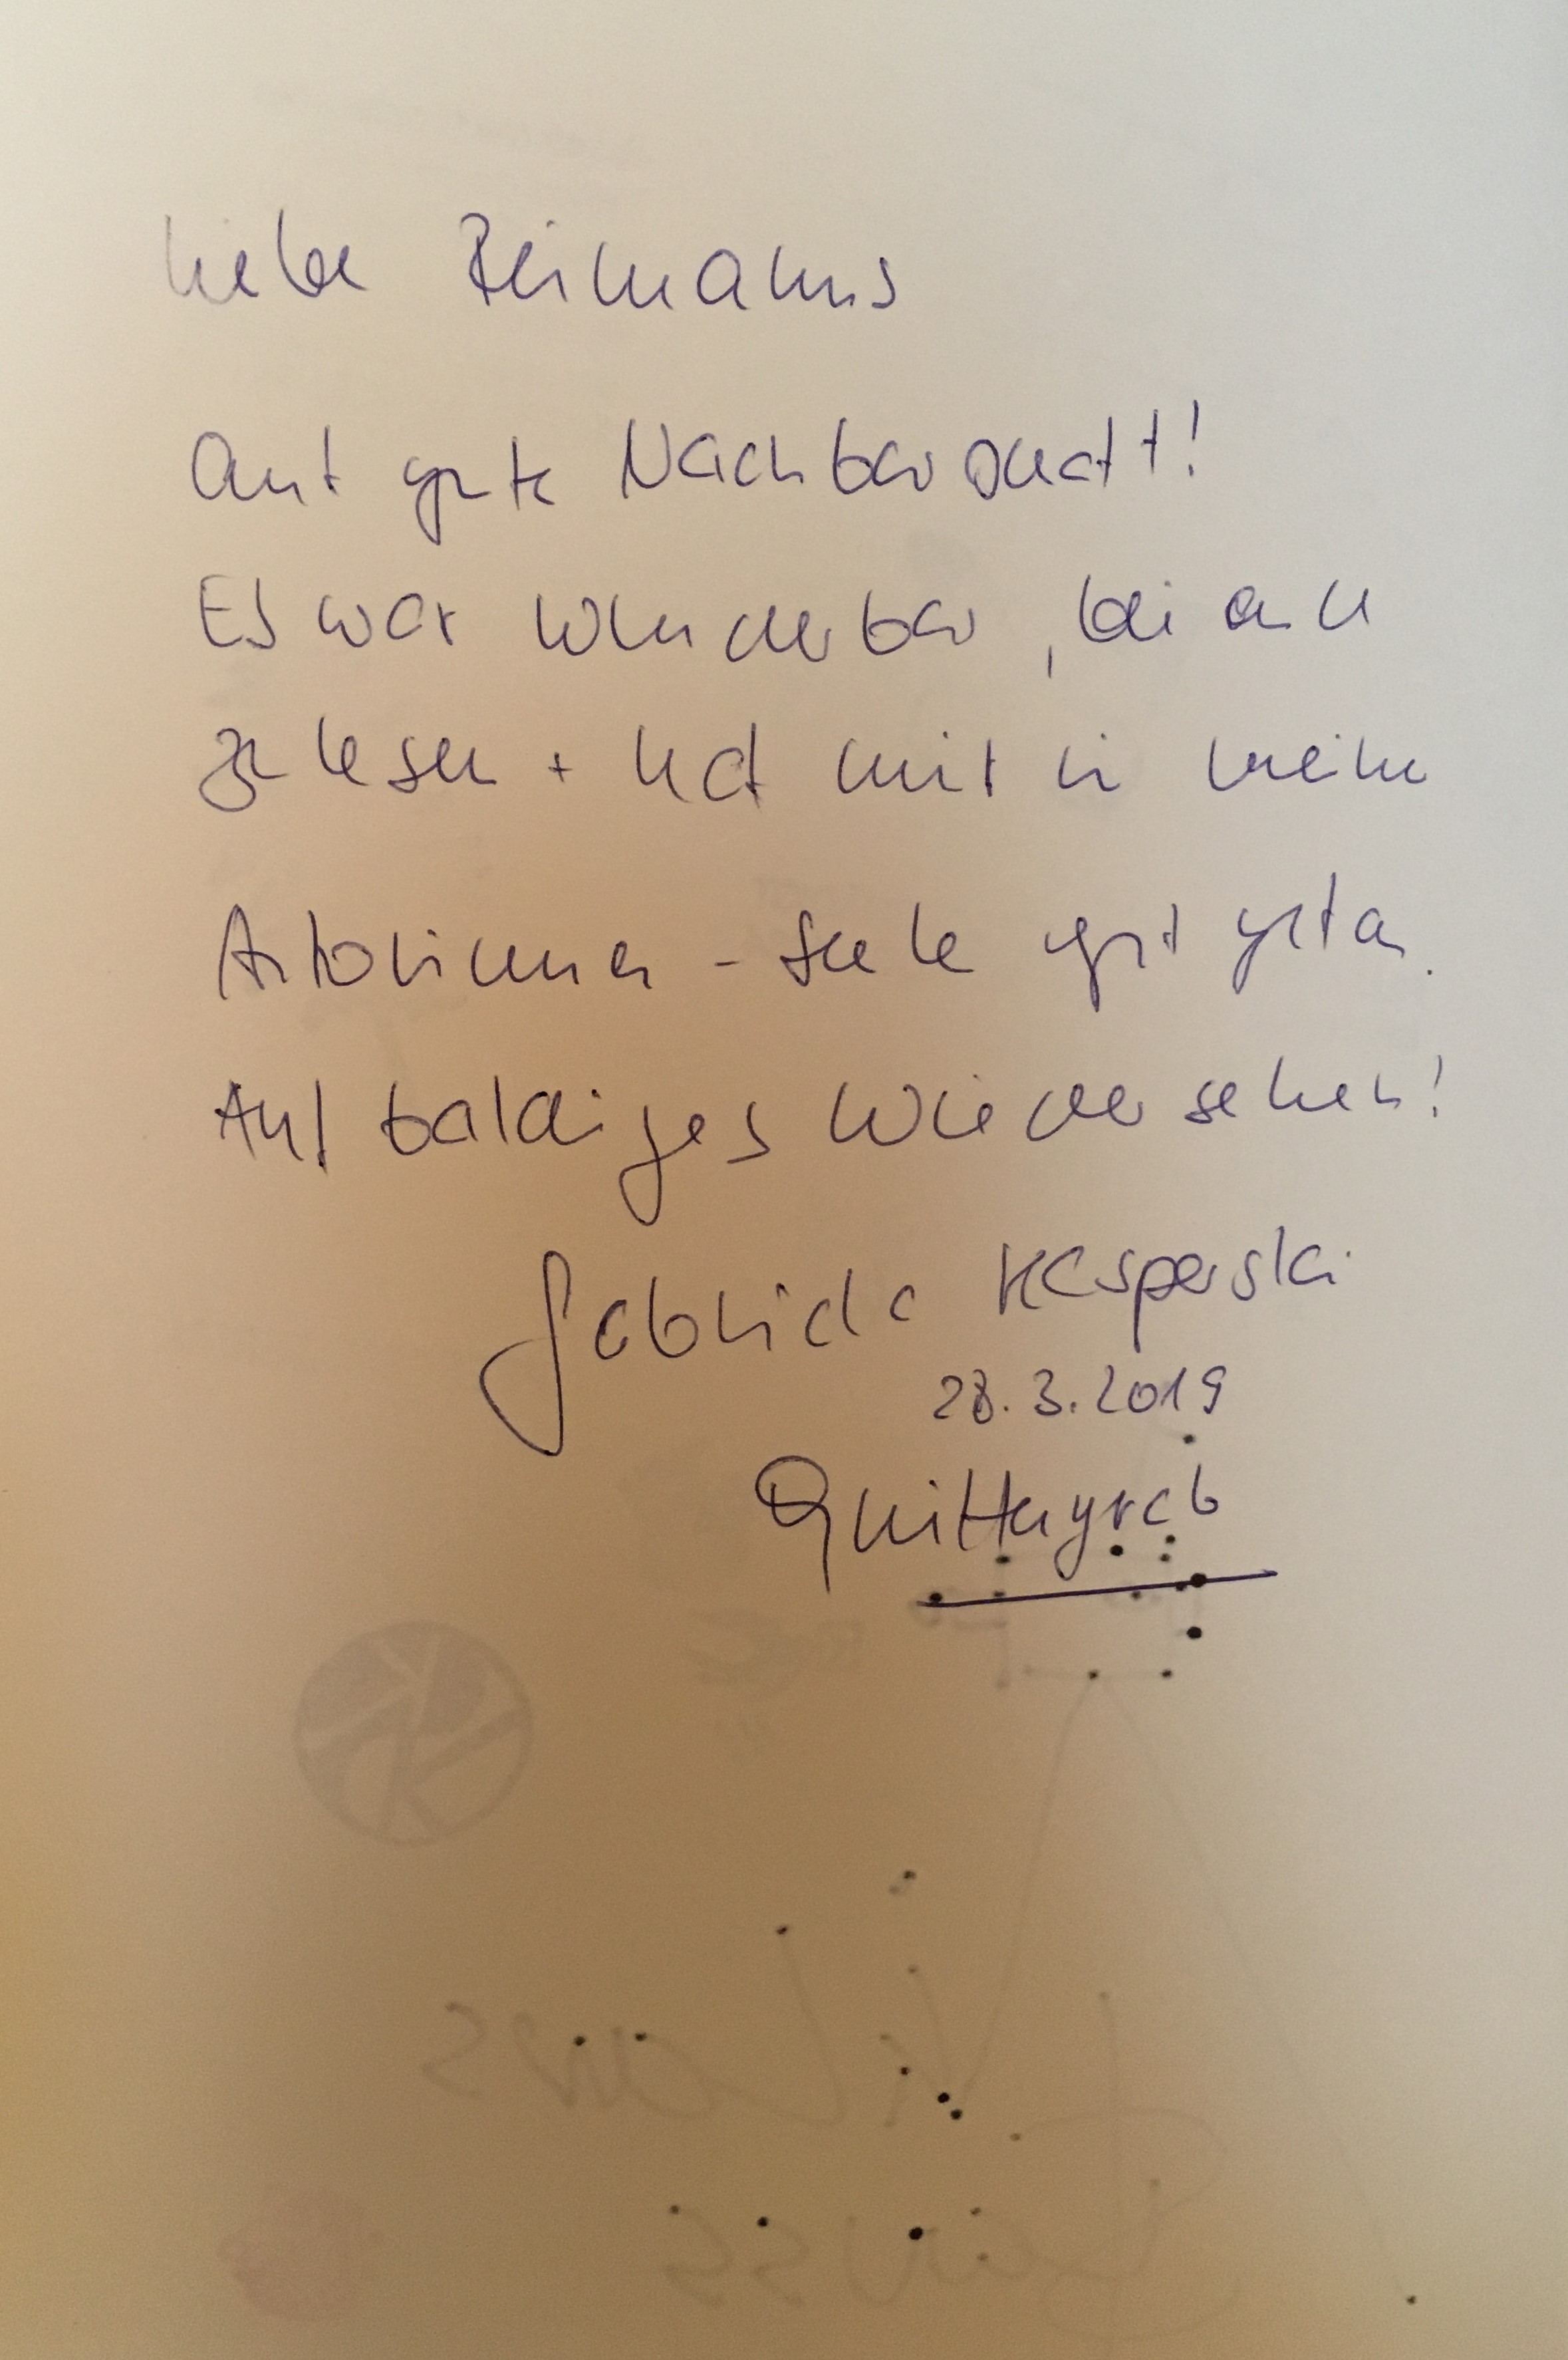 Liebe Reimanns
Auf gute Nachbarschaft!
Es war wunderbar, bei euch
zu lesen + hat mir in meiner
Autorinnen-Seele gut getan.
Auf baldiges Wiedersehen!
Gabriela Kasperski
28.3.2019
Quittengrab